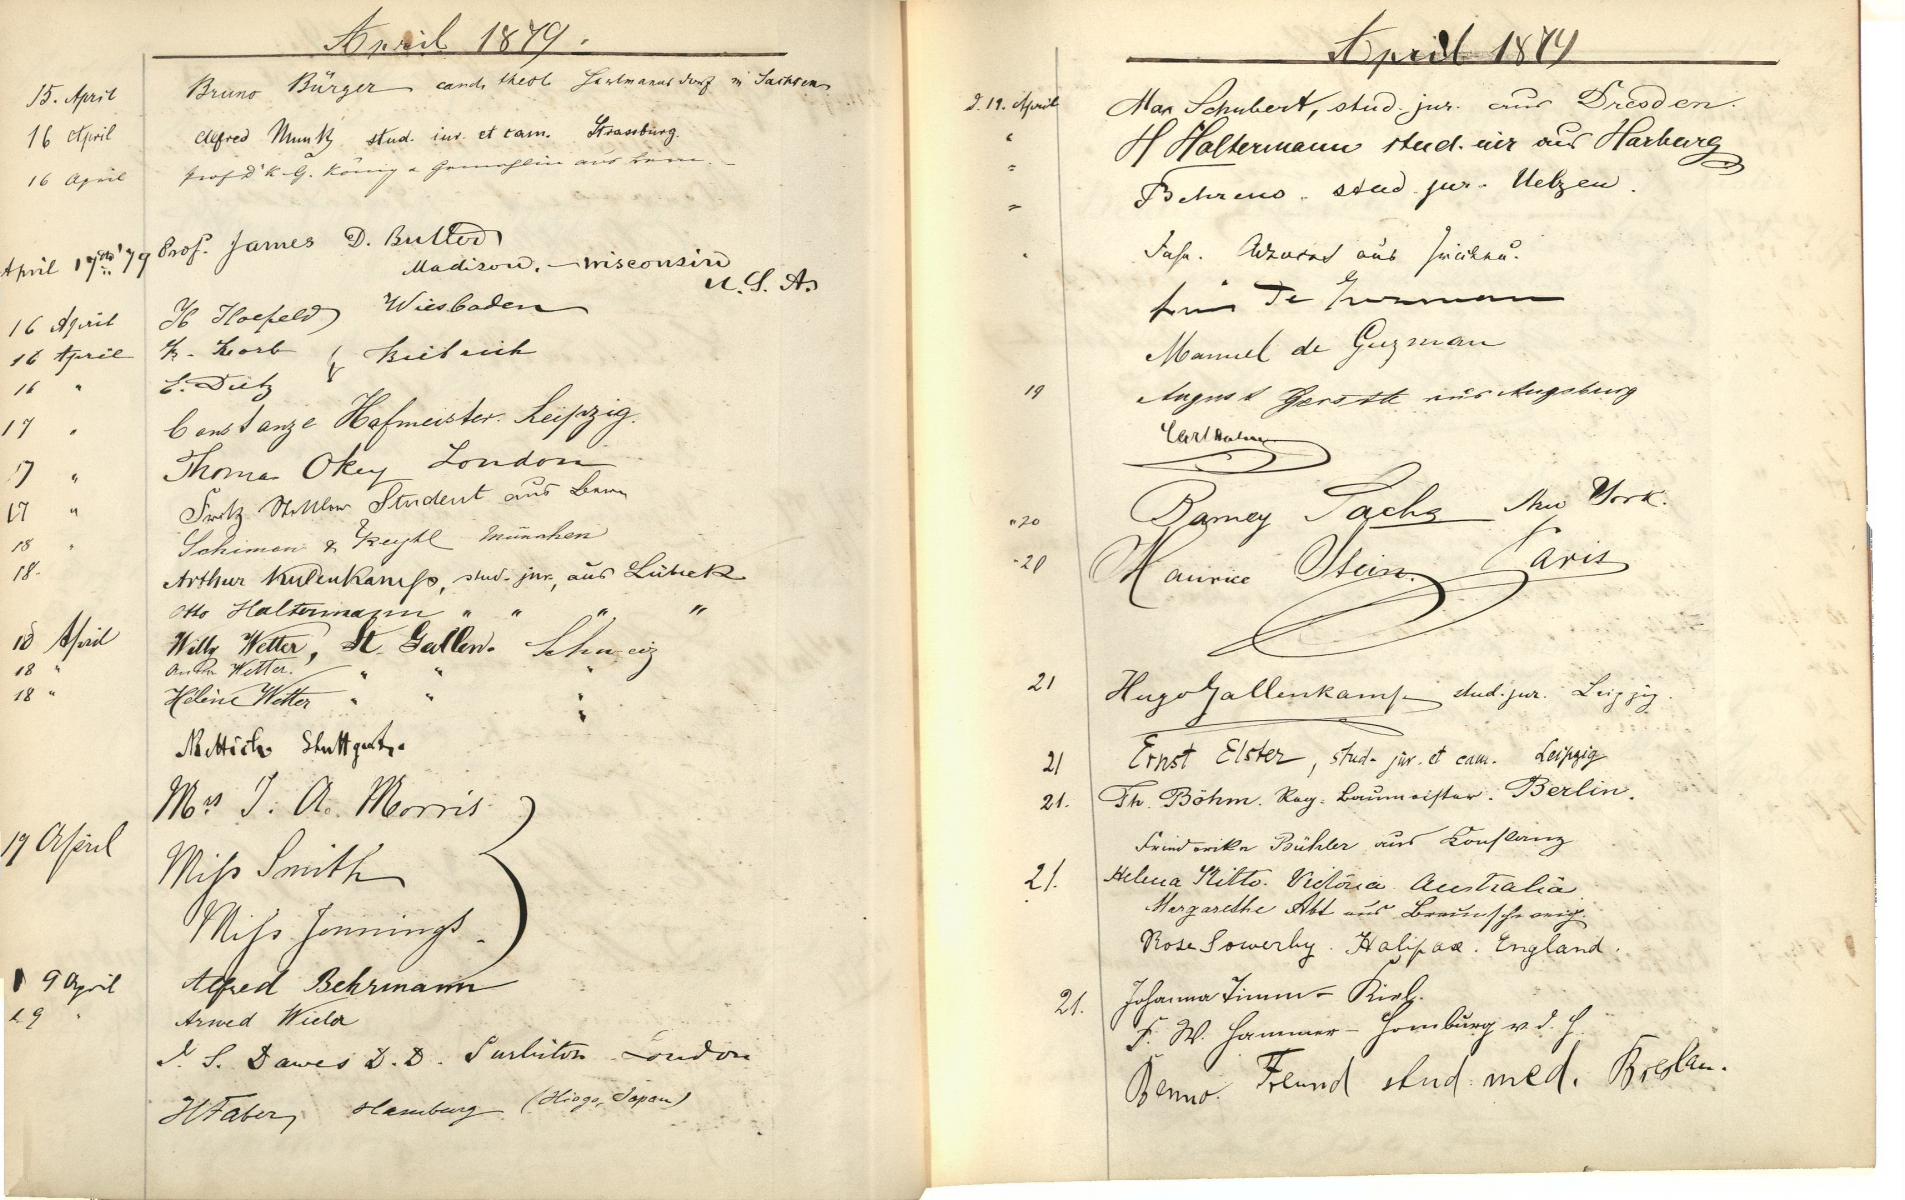 April 1879.
15. April Bruno Bürger cand. theol. Hartmannsdorf in Sachsen
16 April Alfred Munk stud. iur. et cam. Strassburg.
16 April Prof. Dr K. G. König & Gemahlin aus Bern.
April 17th '79 Prof. James D. Butler
Madison, - Wisconsin
U. S. A.
16 April H Haefeld Wiesbaden
16 April K. Korb
16 " E. Dietz
17 " Constanze Hafmeister. Leipzig.
17 " Thomas Okey London
17 " Fritz Student aus Bern
18 " Schiman & München
18. Arthur Kulenkamp, stud. jur., aus Lübeck
Otto Haltermann " " " "
18 April Willy Wetter, St. Gallen. Schweiz
18 " Wetter. " " "
18 " Hélène Wetter " " "
Stuttgart.
Mrs J. A. Morris
19 April Miss Smith
Miss Jennings.
19 April Alfred Behrmann
19 " Arwed
J. S. Dawes D. D. Surbiton London
H Faber, Hamburg (Hiogo, Japan)
April 1879
d. 19. April Max Schubert, stud. jur. aus Dresden.
" H Haltermann stud. iur aus Harburg
= Behrens. stud. jur. Uelzen.
aus
de Guzman
Manuel de Guzman
19 August Gerstle aus Augsburg
Carl
" 20 Barney Sachs New York.
- 20 Maurice Stein. Paris
21 Hugo Gallenkamp stud. jur. Leipzig.
21 Ernst Elster, stud. jur. et cam. Leipzig
21. Th. Böhm. Reg. Baumeister. Berlin.
Friederike Bühler aus Constanz
21. Helena Kitto. Victoria Australia
Margarethe Abt aus Braunschweig.
Rose Sowerby. Halifax. England.
21. Johanna Timm - Kiel.
F. W. Hammer - Homburg v. d. H.
Benno Freund stud. med. Breslau.